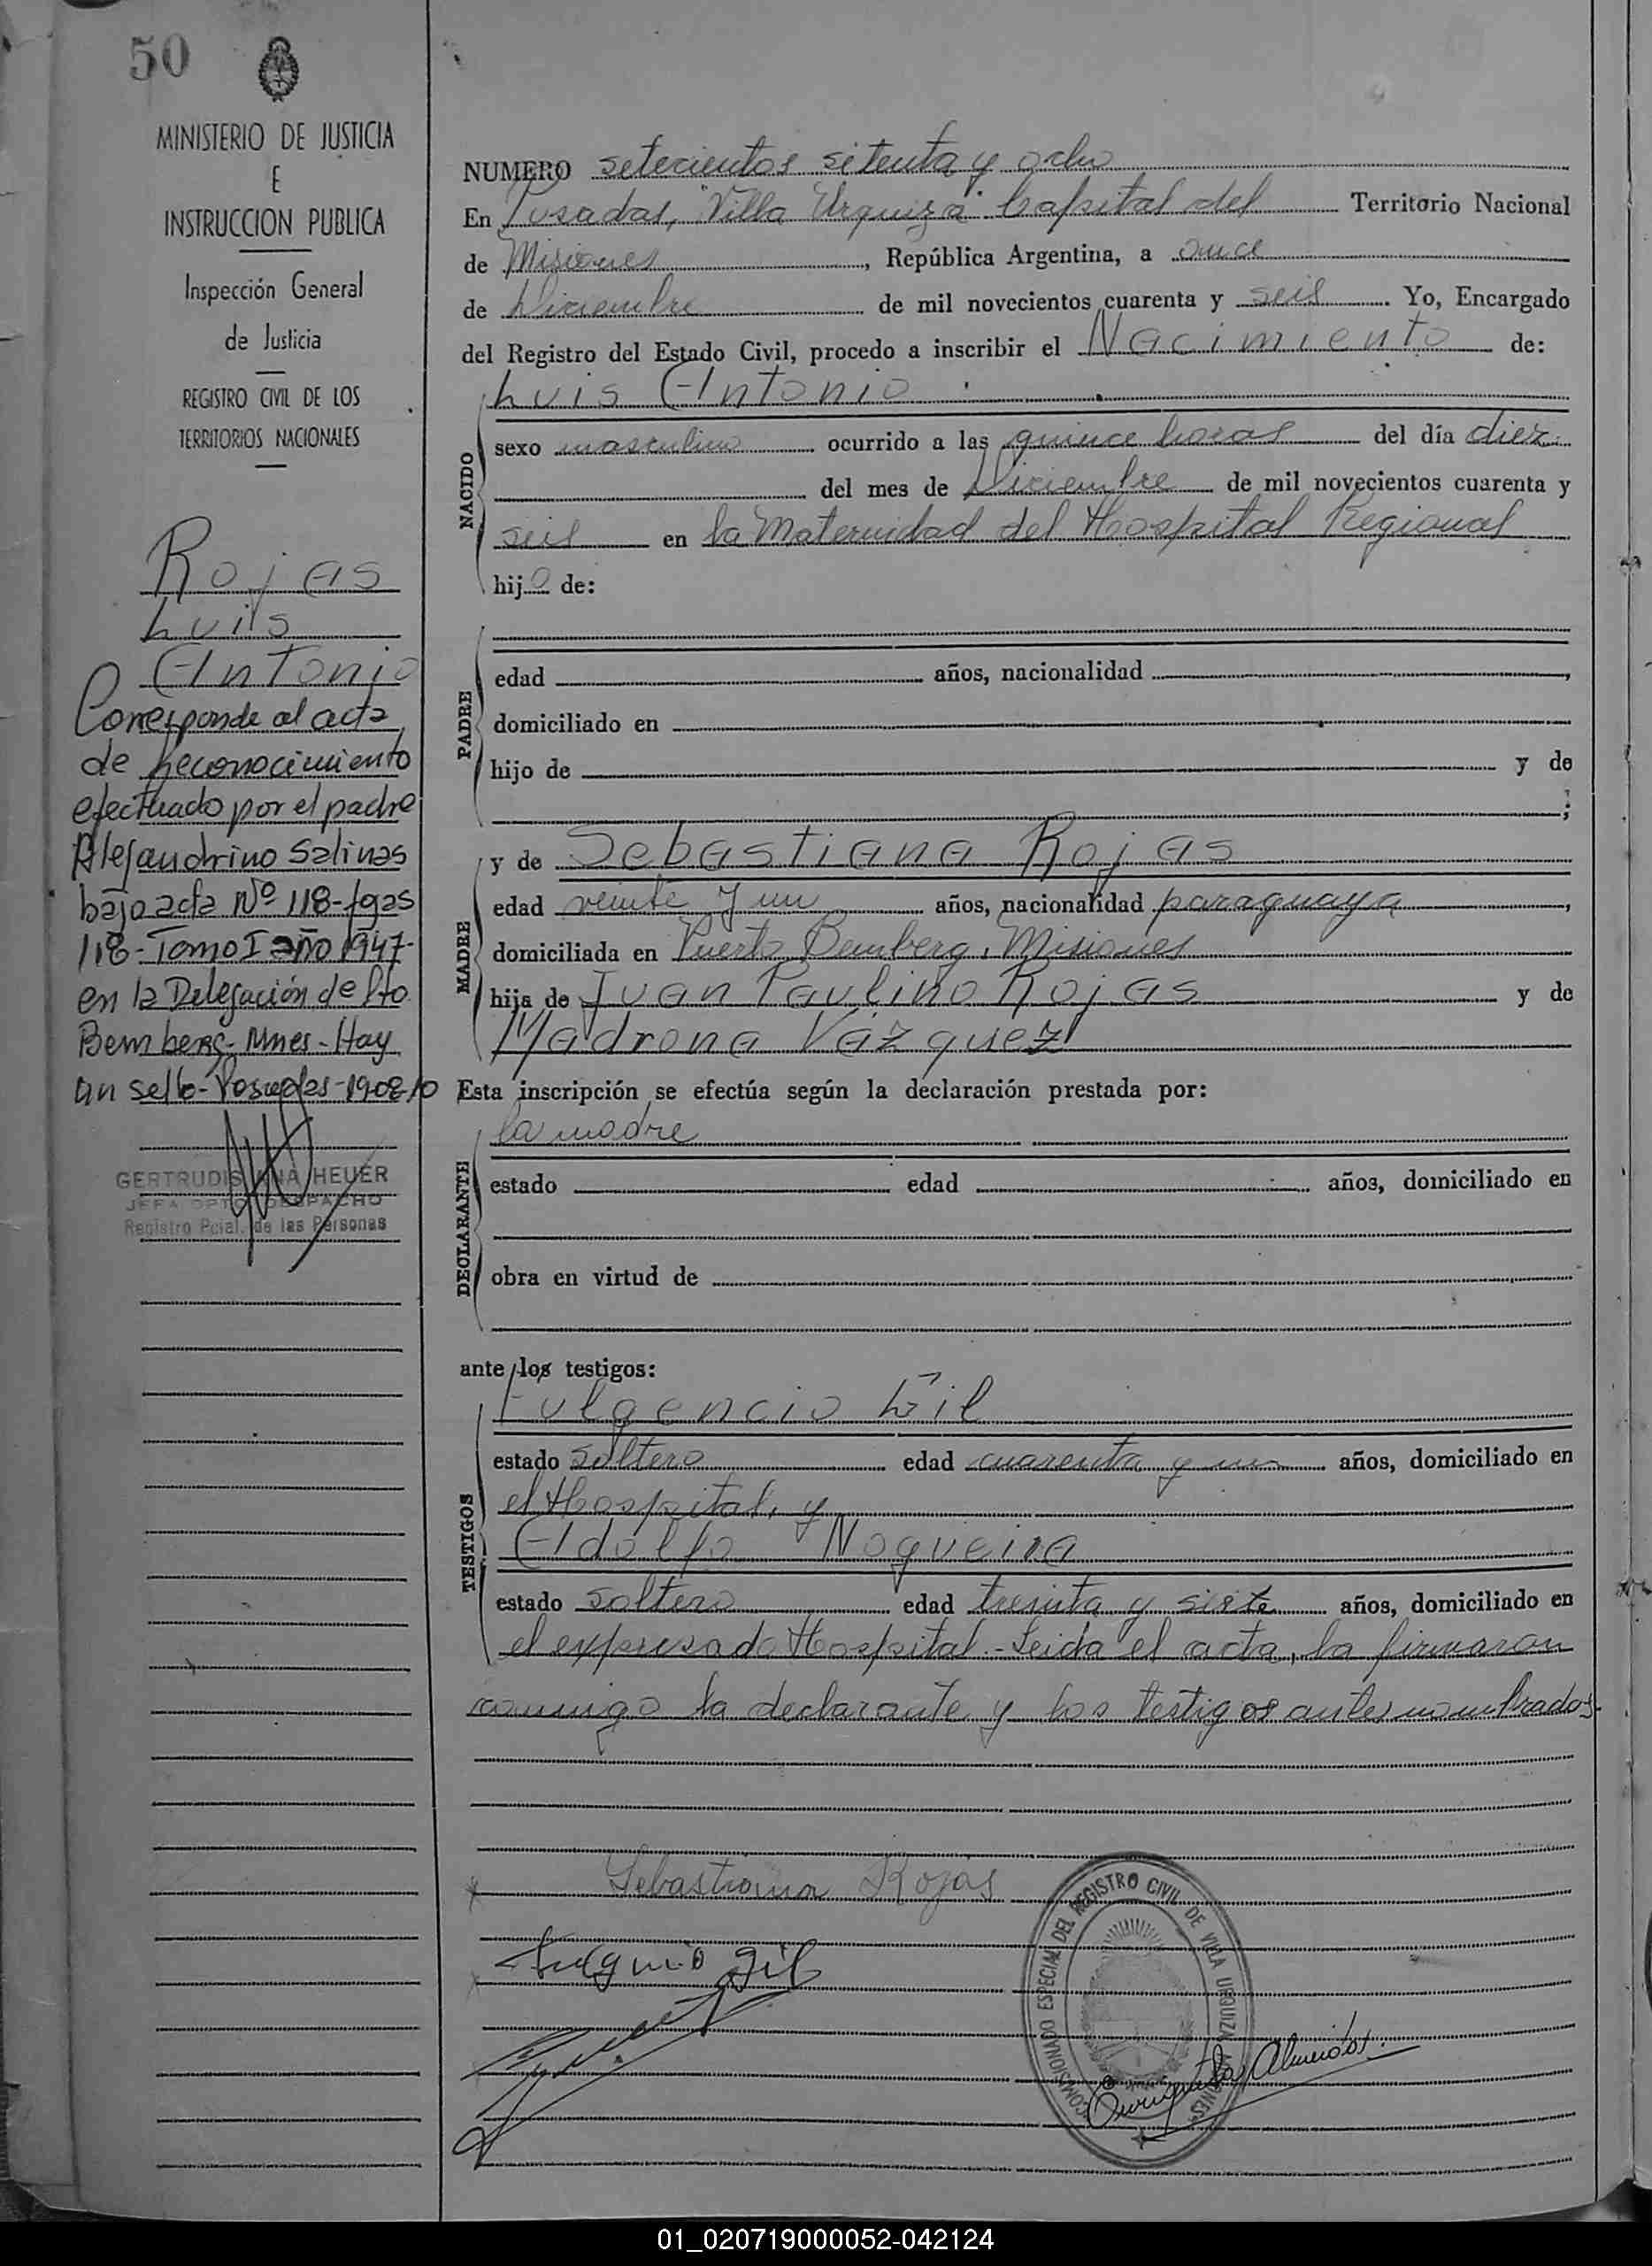 50
MINISTERIO DE JUSTICIA
E
INSTRUCCION PUBLICA
Inspección General
de Justicia
REGISTRO CIVIL DE LOS
TERRITORIOS NACIONALES
Rojas
Luis
Antonio
Corresponde al acta
de Reconocimiento
efectuado por el padre
Alejandrino Salinas
bajo acta Nº 118-fgas
118-Tomo I año 1947-
en la Delegación de Pto.
Bemberg-Mnes-Hay
un sello-Posadas-
GERTRUDIS ANA HEUER
JEFA DPTO DESPACHO
Registro Pcial. de las Personas
NUMERO setecientos setenta y ocho
En Posadas, "Villa Urquiza" Capital del Territorio Nacional
de Misiones, República Argentina, a once
de Diciembre de mil novecientos cuarenta y seis. Yo, Encargado
del Registro del Estado Civil, procedo a inscribir el Nacimiento de:
Luis Antonio
NACIDO
sexo masculino ocurrido a las quince horas del día diez
del mes de Diciembre de mil novecientos cuarenta y
seis en la Maternidad del Hospital Regional
hijo de:
PADRE
edad años, nacionalidad ,
domiciliado en
hijo de y de
;
MADRE
y de Sebastiana Rojas
edad veinte y un años, nacionalidad paraguaya,
domiciliada en Puerto Bemberg, Misiones
hija de Juan Paulino Rojas y de
Madrona Vázquez
Esta inscripción se efectúa según la declaración prestada por:
la madre
DECLARANTE
estado edad años, domiciliado en
obra en virtud de
ante los testigos:
Fulgencio Gil
TESTIGOS
estado soltero edad cuarenta y un años, domiciliado en
el Hospital, y
Adolfo Nogueira
estado soltero edad treinta y siete años, domiciliado en
el expresado Hospital.- Leida el acta, la firmaron
conmigo la declarante y los testigos antes nombrados.
Sebastiana Rojas
Fulgencio Gil
COMISIONADO ESPECIAL DEL REGISTRO CIVIL DE VILLA URQUIZA MISIONES
Enriqueta Almeida
01_020719000052-042124